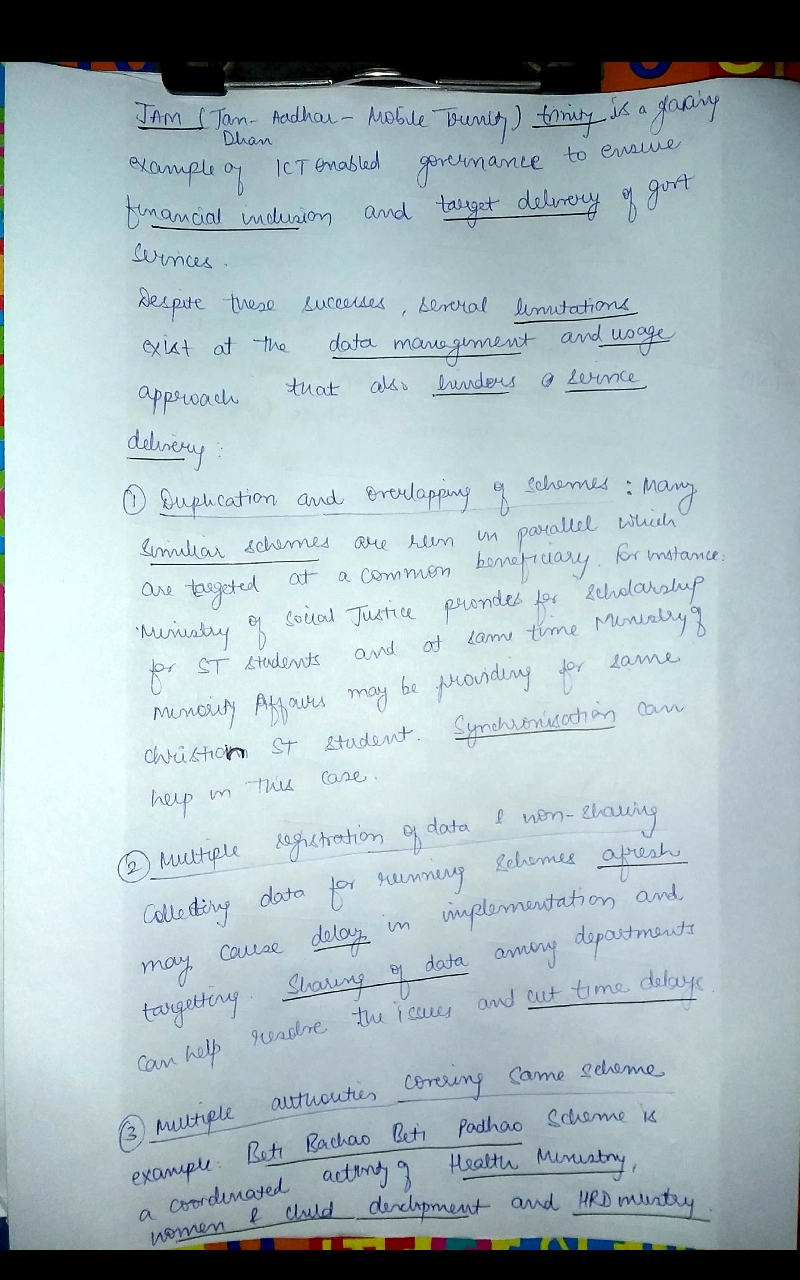 JAM (Jan- Aadhar - Mobile Trinity) trinity is a glaring
Dhan
example of ICT enabled governance to ensure
financial inclusion and target delivery of govt
services.
Despite these successes, several limitations
exist at the data management and usage
approach that also hinders service
delivery:
① Duplication and overlapping of schemes: Many
similar schemes are run in parallel which
are targeted at a common beneficiary. For instance:
Ministry of Social Justice provides for scholarship
for ST students and at same time Ministry of
Minority Affairs may be providing for same
christian ST student. Synchronisation can
help in this case.
② Multiple registration of data & non-sharing
Collecting data for running schemes afresh
may cause delay in implementation and
targetting. Sharing of data among departments
can help resolve the issues and cut time delays.
③ Multiple authorities covering same scheme
example: Beti Bachao Beti Padhao Scheme is
a coordinated activity of Health Ministry,
women & child development and HRD ministry.